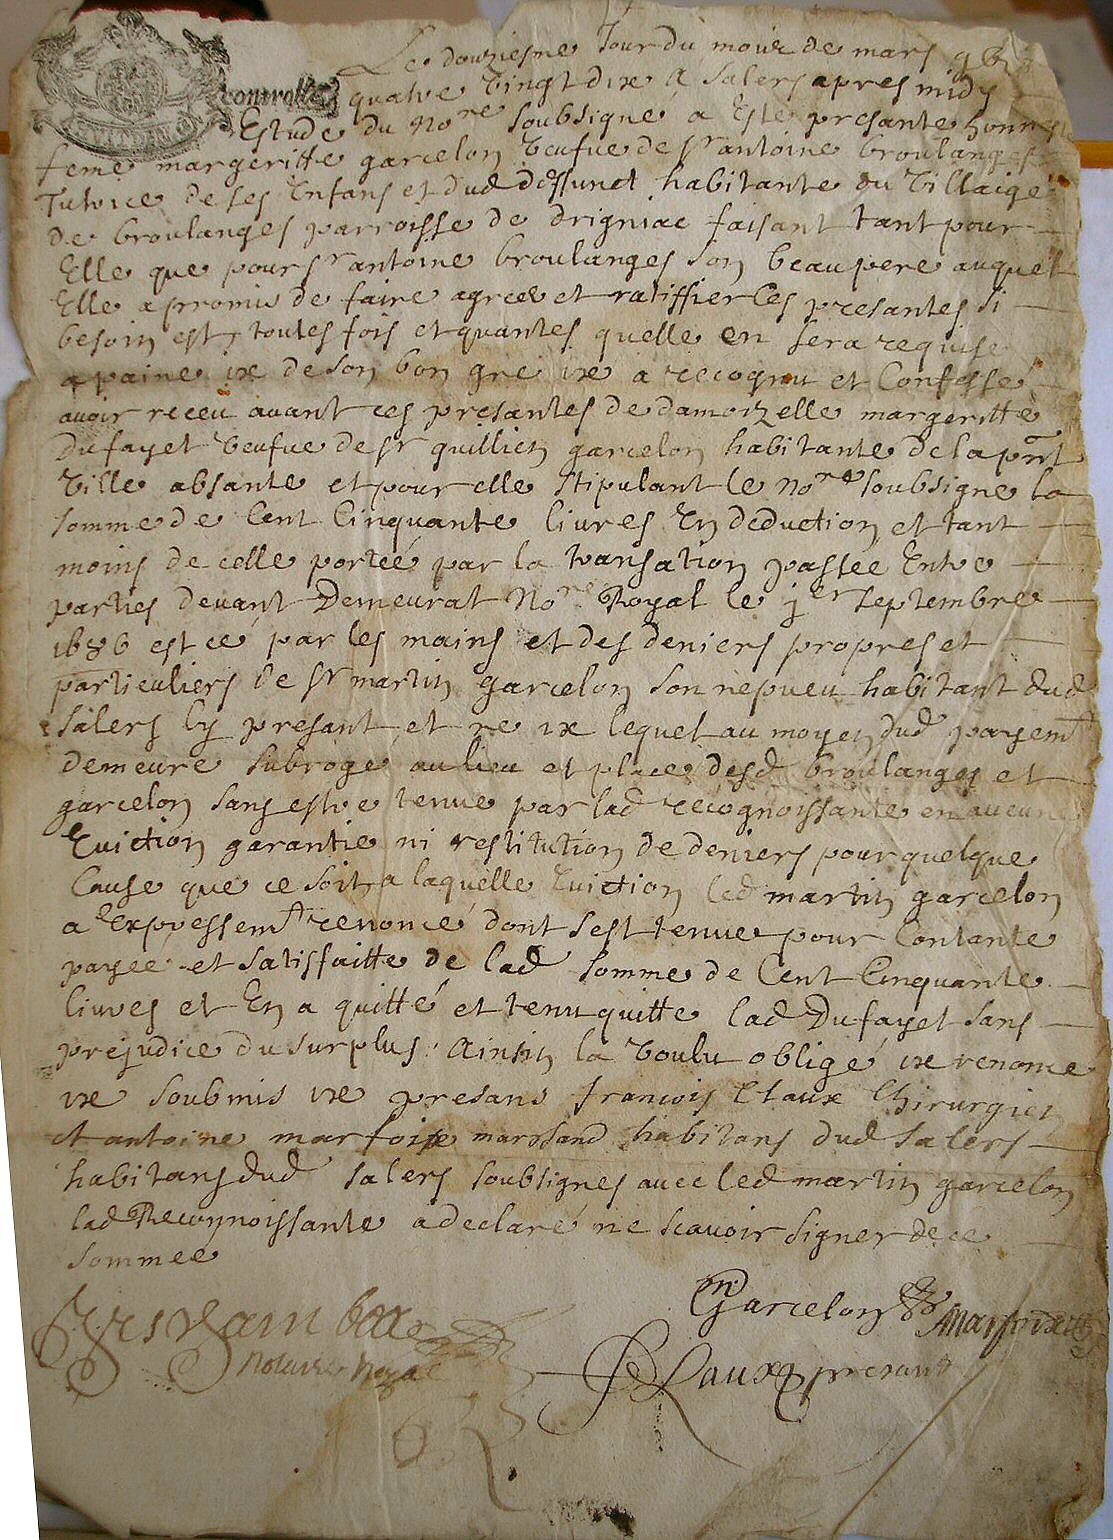 Le douziesme Jour du mois de mars
controlle quatre Vingt dix A Salers apres midy
Estude du No.re soubsigne a Este presante honneste
feme margeritte garcelon Veufue de Sr antoine broulanges
Tutrice de ses Enfans et dud deffunct habitante du Villaige
de broulanges parroisse de drigniac faisant tant pour
Elle que pour Sr antoine broulanges son beau pere auquel
Elle a promis de faire agreer et ratiffier les presantes si
besoin est, toutes fois et quantes quelle en sera requise
a paine ix de son bon gre ix a recognu et Confessé
auoir receu auant ces presantes de damoizelle margeritte
Dufayet Veufue de Sr guillien garcelon habitante de la pnt
Ville absante et pour elle stipulant le No.re soubsigne la
somme de Cent Cinquante liures En deduction et tant
moins de celle porteé par la transation passee Entre
parties deuant Demeurat No.re Royal le jer septembre
1686 est ce par les mains et des deniers propres et
particuliers de Sr martin garcelon son nepueu habitant dud
salers Cy presant et re ix lequel au moyen dud payemt
demeure subroge au lieu et place desd broulanges et
garcelon sans estre tenue par lad recognoissante en aucune
Euiction garantie ni restitution de deniers pour quelque
Cause que ce soit, a laquelle Euiction led martin garcelon
a Expressemt renoncé dont sest tenue pour Contante
payeé et satisfaitte de lad somme de Cent Cinquante
liures et En a quitté et tenu quitte lad Dufayet sans
prejudice du surplus. Ainsin la Voulu obligé ix renonce
ix soubmis ix presans francois Claux Chirurgien
et antoine marfoix marchand habitans dud salers
habitans dud salers soubsignes auec led martin garcelon
lad Recognoissante a declaré ne scauoir signer de ce
sommeé
Garcelon Marfoix
Notaire Royal
Claux presant